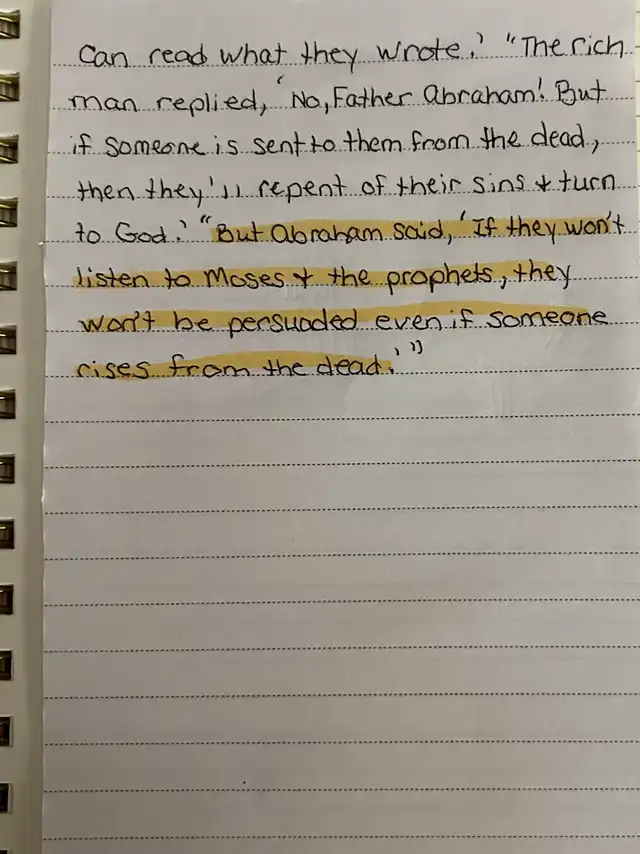 can read what they wrote.' "The rich
man replied, 'No, Father Abraham! But
if someone is sent to them from the dead,
then they'll repent of their sins & turn
to God.' "But Abraham said, 'If they won't
listen to Moses & the prophets, they
won't be persuaded even if someone
rises from the dead.' "